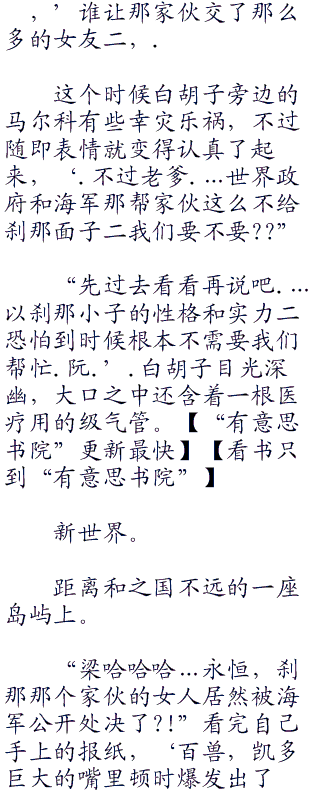 ，’谁让那家伙交了那么
多的女友二，.
这个时候白胡子旁边的
马尔科有些幸灾乐祸，不过
随即表情就变得认真了起
来，‘.不过老爹....世界政
府和海军那帮家伙这么不给
刹那面子二我们要不要??”
“先过去看看再说吧....
以刹那小子的性格和实力二
恐怕到时候根本不需要我们
帮忙.阮.’.白胡子目光深
幽，大口之中还含着一根医
疗用的级气管。【“有意思
书院”更新最快】【看书只
到“有意思书院”】
新世界。
距离和之国不远的一座
岛屿上。
“梁哈哈哈...永恒，刹
那那个家伙的女人居然被海
军公开处决了?!”看完自己
手上的报纸，‘百兽，凯多
巨大的嘴里顿时爆发出了